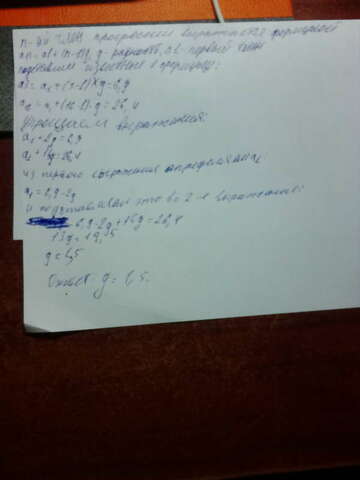 n-ый член прогрессии выражается формулой
an = a1 + (n-1)g, g - разность, a1 - первый член
подставим известные в формулу:
a3 = a1 + (3-1)×g = 6,9
a16 = a1 + (16-1)·g = 26,4
Упрощаем выражения:
a1 + 2g = 6,9
a1 + 15g = 26,4
из первого выражения определяем a1
a1 = 6,9 - 2g
и подставляем это во 2-е выражение:
6,9 - 2g + 15g = 26,4
13g = 19,5
g = 1,5
Ответ: g = 1,5.